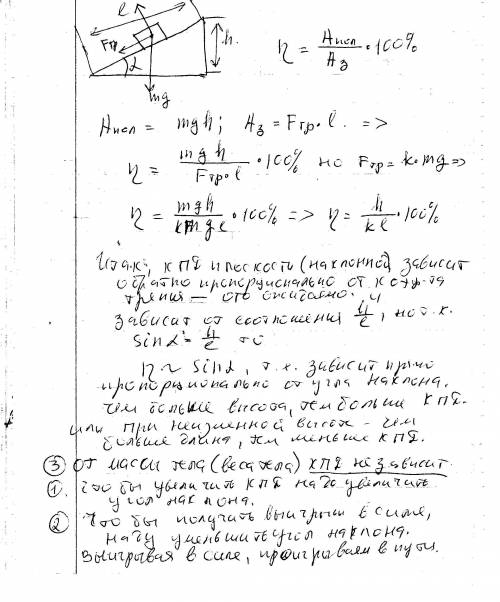 l
Fтр
h
α
mg
η = Aпол / Aз · 100%
Aпол = mgh; Aз = Fтр · l. =>
η = mgh / Fтр · l · 100% но Fтр = k · mg =>
η = mgh / kmgl · 100% => η = h / kl · 100%
Итак, КПД плоскости (наклонной) зависит
обратно пропорционально от коэф-та
трения — это ожидаемо. И
зависит от соотношения h/l, но т.к.
sin α = h/l то
η ~ sin α, т.х. зависит прямо
пропорционально от угла наклона.
чем больше высота, тем больше КПД.
или при неизменной высоте - чем
больше длина, тем меньше КПД.
③ от массы тела (веса тела) КПД не зависит.
① Что бы увеличить КПД надо увеличить
угол наклона.
② Что бы получить выигрыш в силе,
надо уменьшить угол наклона.
Выигрывая в силе, проигрываем в пути.